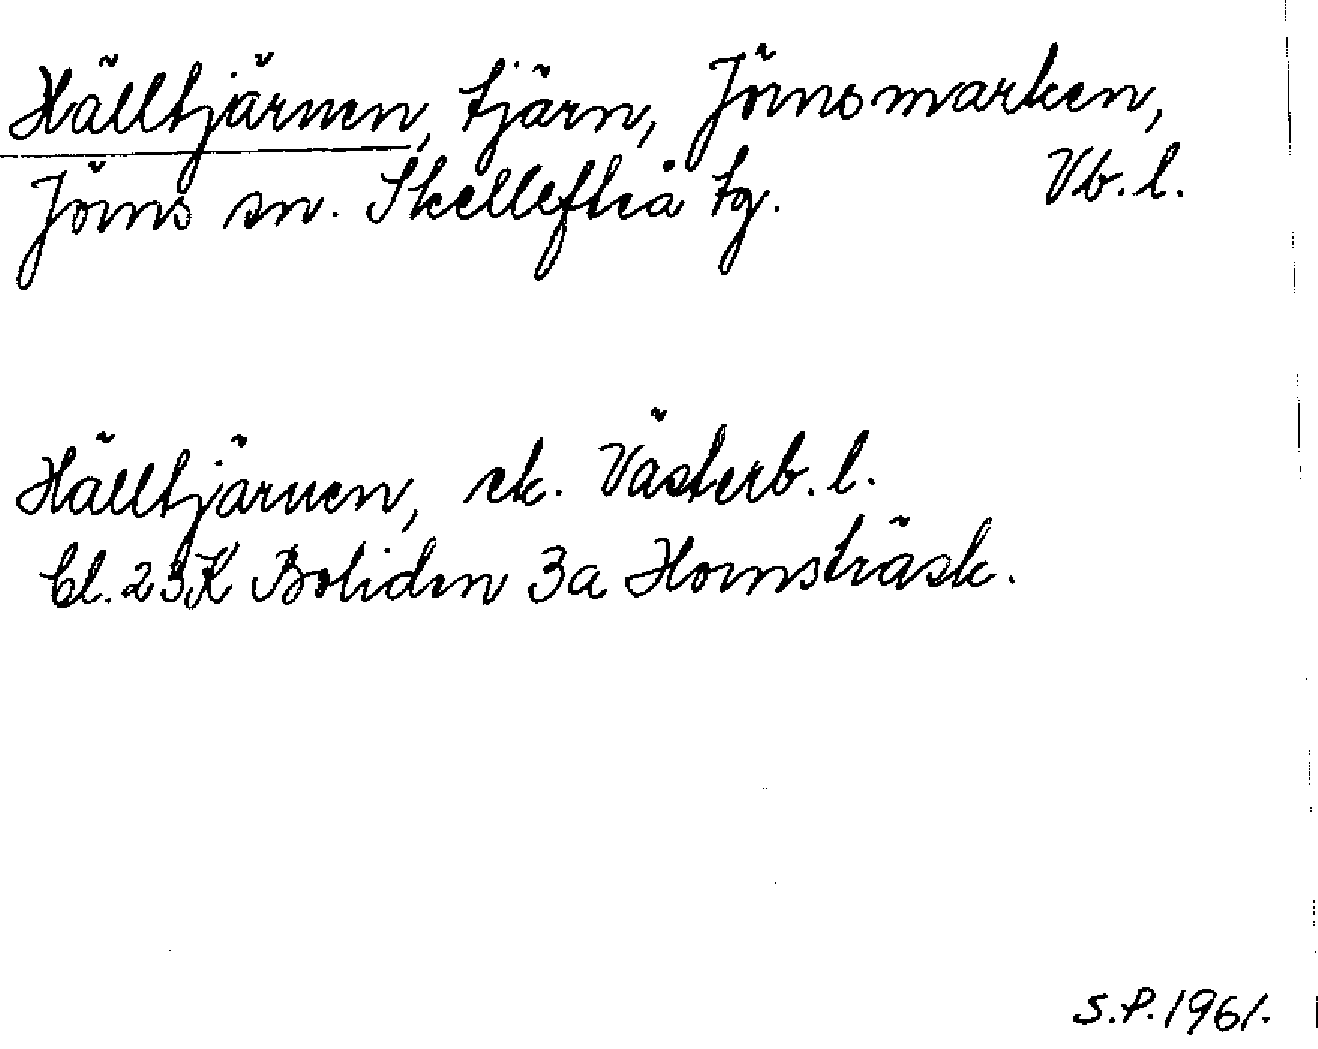 Hälltjärnen, tjärn, Jörnsmarken,
Jörns sn. Skellefteå tg. Vb. l.
Hälltjärnen, ek. Västerb. l.
bl. 23K Boliden 3a Hornsträsk.
S.P. 1961.